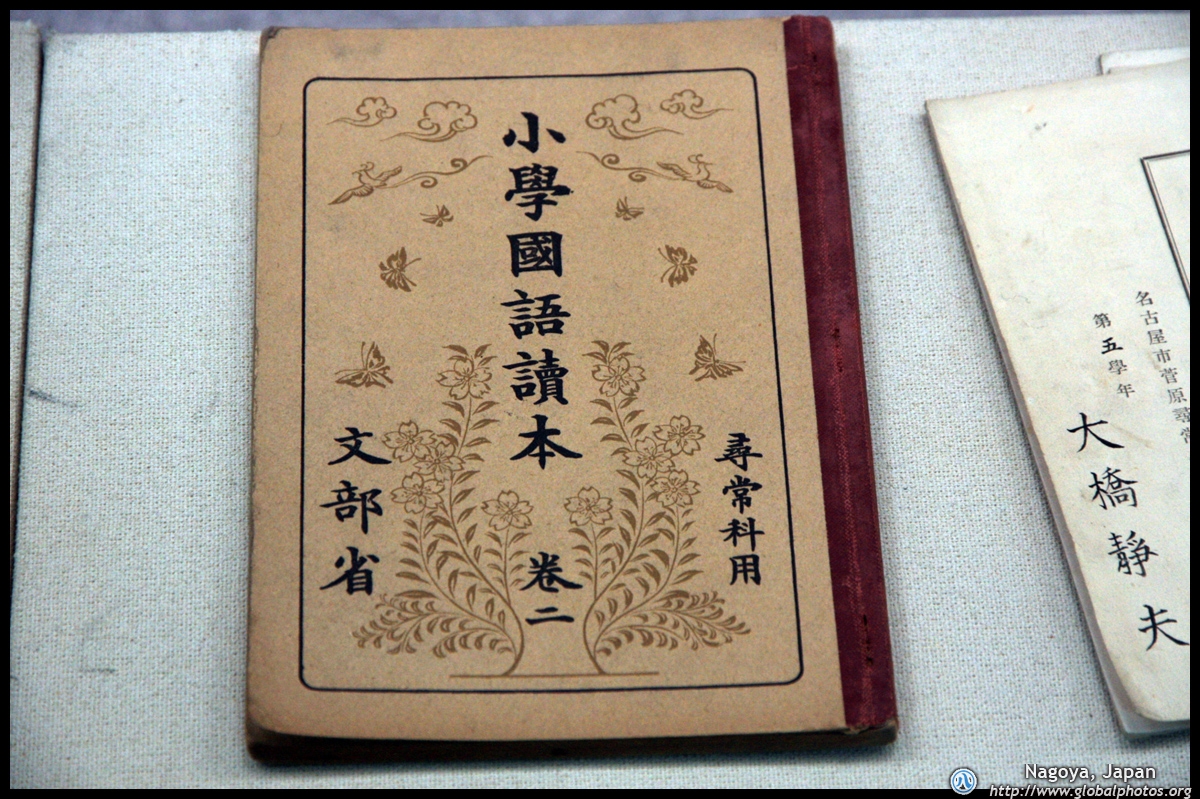 尋常科用
小學國語讀本
卷二
文部省
名古屋市菅原尋常
第五學年
大橋靜夫
Nagoya, Japan
http://www.globalphotos.org